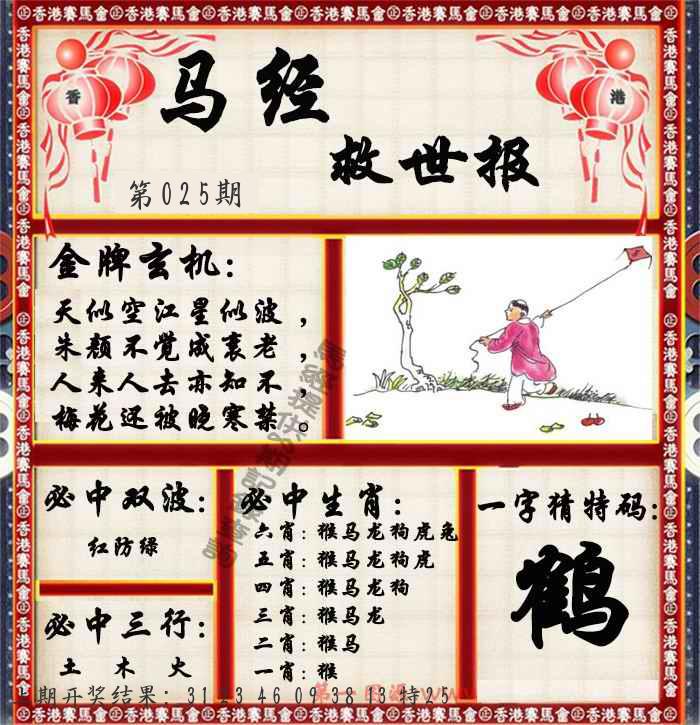 香港賽馬會
香
港
马经
救世报
第025期
金牌玄机：
天似空江星似波，
朱颜不覺成衰老，
人来人去亦知不，
梅花还被晚寒禁。
必中双波：
红防绿
必中三行：
土 木 火
必中生肖：
六肖：猴马龙狗虎兔
五肖：猴马龙狗虎
四肖：猴马龙狗
三肖：猴马龙
二肖：猴马
一肖：猴
一字猜特码：
鹤
期开奖结果：31 3 46 09 38 13特25
第一图